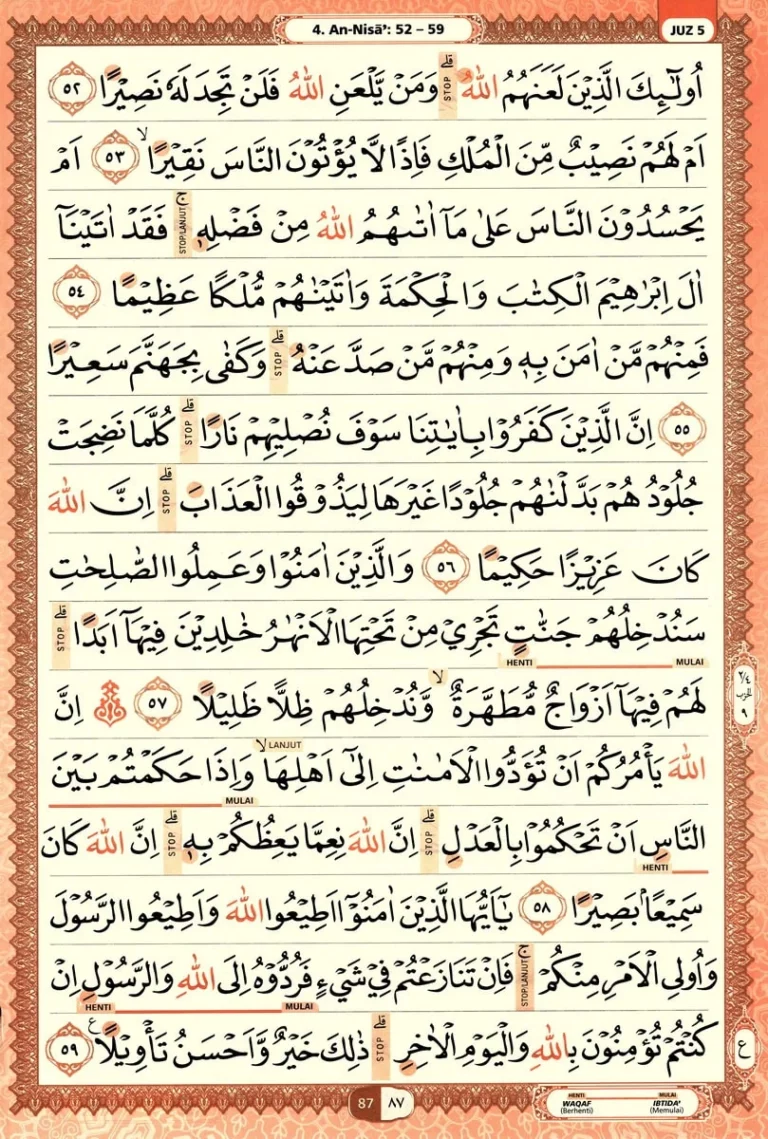 4. An-Nisā': 52 – 59
JUZ 5
اُولٰۤىِٕكَ الَّذِيْنَ لَعَنَهُمُ اللّٰهُ ۗ وَمَنْ يَّلْعَنِ اللّٰهُ فَلَنْ تَجِدَ لَهٗ نَصِيْرًا ۝٥٢
اَمْ لَهُمْ نَصِيْبٌ مِّنَ الْمُلْكِ فَاِذًا لَّا يُؤْتُوْنَ النَّاسَ نَقِيْرًاۙ ۝٥٣ اَمْ
يَحْسُدُوْنَ النَّاسَ عَلٰى مَآ اٰتٰىهُمُ اللّٰهُ مِنْ فَضْلِهٖۚ فَقَدْ اٰتَيْنَآ
اٰلَ اِبْرٰهِيْمَ الْكِتٰبَ وَالْحِكْمَةَ وَاٰتَيْنٰهُمْ مُّلْكًا عَظِيْمًا ۝٥٤
فَمِنْهُمْ مَّنْ اٰمَنَ بِهٖ وَمِنْهُمْ مَّنْ صَدَّ عَنْهُ ۗ وَكَفٰى بِجَهَنَّمَ سَعِيْرًا
۝٥٥ اِنَّ الَّذِيْنَ كَفَرُوْا بِاٰيٰتِنَا سَوْفَ نُصْلِيْهِمْ نَارًا ۗ كُلَّمَا نَضِجَتْ
جُلُوْدُهُمْ بَدَّلْنٰهُمْ جُلُوْدًا غَيْرَهَا لِيَذُوْقُوا الْعَذَابَ ۗ اِنَّ اللّٰهَ
كَانَ عَزِيْزًا حَكِيْمًا ۝٥٦ وَالَّذِيْنَ اٰمَنُوْا وَعَمِلُوا الصّٰلِحٰتِ
سَنُدْخِلُهُمْ جَنّٰتٍ تَجْرِيْ مِنْ تَحْتِهَا الْاَنْهٰرُ خٰلِدِيْنَ فِيْهَآ اَبَدًا ۗ
MULAI HENTI
لَهُمْ فِيْهَآ اَزْوَاجٌ مُّطَهَّرَةٌ ۙ وَّنُدْخِلُهُمْ ظِلًّا ظَلِيْلًا ۝٥٧ اِنَّ
اللّٰهَ يَأْمُرُكُمْ اَنْ تُؤَدُّوا الْاَمٰنٰتِ اِلٰٓى اَهْلِهَاۙ وَاِذَا حَكَمْتُمْ بَيْنَ
LANJUT MULAI
النَّاسِ اَنْ تَحْكُمُوْا بِالْعَدْلِ ۗ اِنَّ اللّٰهَ نِعِمَّا يَعِظُكُمْ بِهٖ ۗ اِنَّ اللّٰهَ كَانَ
HENTI
سَمِيْعًاۢ بَصِيْرًا ۝٥٨ يٰٓاَيُّهَا الَّذِيْنَ اٰمَنُوْٓا اَطِيْعُوا اللّٰهَ وَاَطِيْعُوا الرَّسُوْلَ
وَاُولِى الْاَمْرِ مِنْكُمْۚ فَاِنْ تَنَازَعْتُمْ فِيْ شَيْءٍ فَرُدُّوْهُ اِلَى اللّٰهِ وَالرَّسُوْلِ اِنْ
MULAI HENTI
كُنْتُمْ تُؤْمِنُوْنَ بِاللّٰهِ وَالْيَوْمِ الْاٰخِرِ ۗ ذٰلِكَ خَيْرٌ وَّاَحْسَنُ تَأْوِيْلًا ࣖ ۝٥٩
٢/٤
الحزب
٩
ع
87 ٨٧
HENTI MULAI
WAQAF IBTIDA'
(Berhenti) (Memulai)